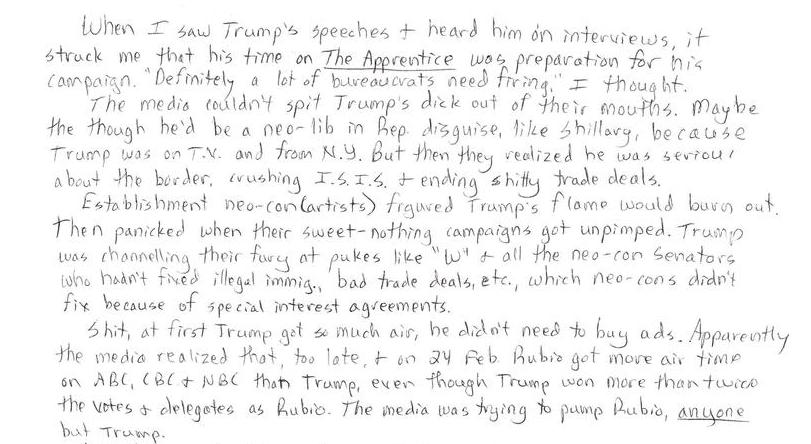 When I saw Trump's speeches + heard him on interviews, it
struck me that his time on The Apprentice was preparation for his
campaign. "Definitely a lot of bureaucrats need firing," I thought.
The media couldn't spit Trump's dick out of their mouths. Maybe
the though he'd be a neo-lib in Rep. disguise, like Shillary, because
Trump was on T.V. and from N.Y. But then they realized he was serious
about the border, crushing I.S.I.S. + ending shitty trade deals.
Establishment neo-con(artists) figured Trump's flame would burn out.
Then panicked when their sweet-nothing campaigns got unpimped. Trump
was channelling their fury at pukes like "W" + all the neo-con Senators
who hadn't fixed illegal immig., bad trade deals, etc., which neo-cons didn't
fix because of special interest agreements.
Shit, at first Trump got so much air, he didn't need to buy ads. Apparently
the media realized that, too late, + on 24 Feb. Rubio got more air time
on ABC, CBC + NBC than Trump, even though Trump won more than twice
the votes + delegates as Rubio. The media was trying to pump Rubio, anyone
but Trump.